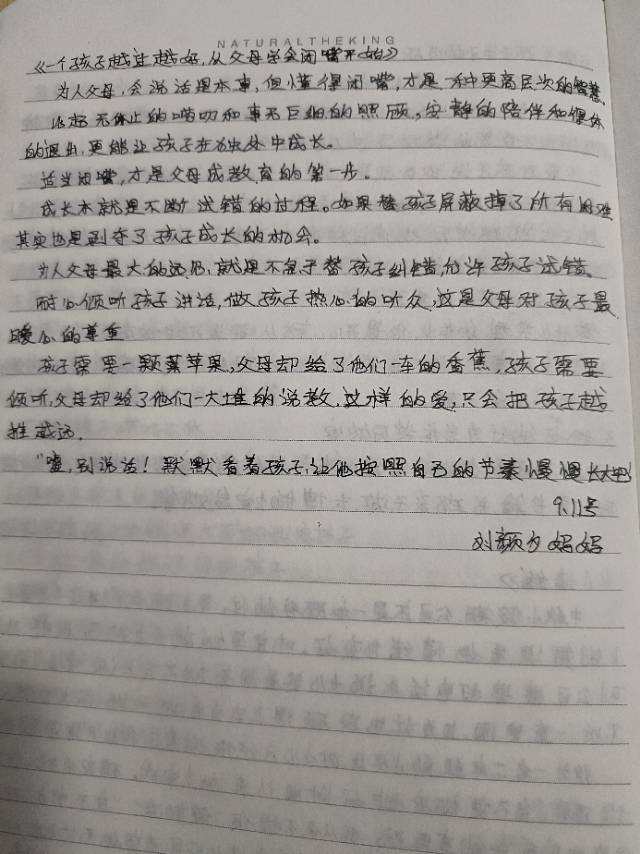 NATURALTHEKING
《一个孩子越过越好,从父母学会闭嘴开始》
为人父母,会说话是本事,但懂得闭嘴,才是一种更高层次的智慧。
比起无休止的唠叨和事无巨细的照顾,安静的陪伴和得体
的退出,更能让孩子在独处中成长。
适当闭嘴,才是父母成教育的第一步。
成长本就是不断试错的过程。如果替孩子屏蔽掉了所有困难
其实也是剥夺了孩子成长的机会。
为人父母最大的远见,就是不急于替孩子纠错,允许孩子试错。
耐心倾听孩子讲话,做孩子热心的听众,这是父母对孩子最
暖心的尊重
孩子需要一颗苹果,父母却给了他们一车的香蕉,孩子需要
倾听,父母却给了他们一大堆的说教,这样的爱,只会把孩子越
推越远.
"嘘,别说话!默默看着孩子,让他按照自己的节奏慢慢长大吧
9.11号
刘颜夕妈妈